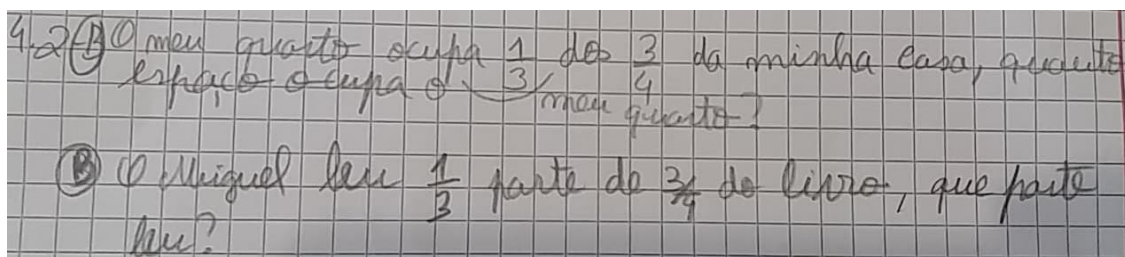 4.2 (A) O meu quarto ocupa 1/3 dos 3/4 da minha casa, quanto
espaço ocupa o meu quarto?
(B) O Miguel leu 1/3 parte de 3/4 do livro, que parte
leu?